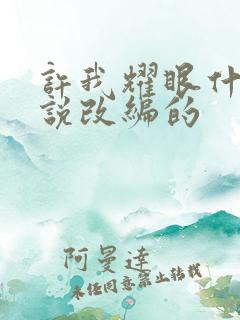 許我耀眼什
說改編的
阿曼達
未经同意禁止转载